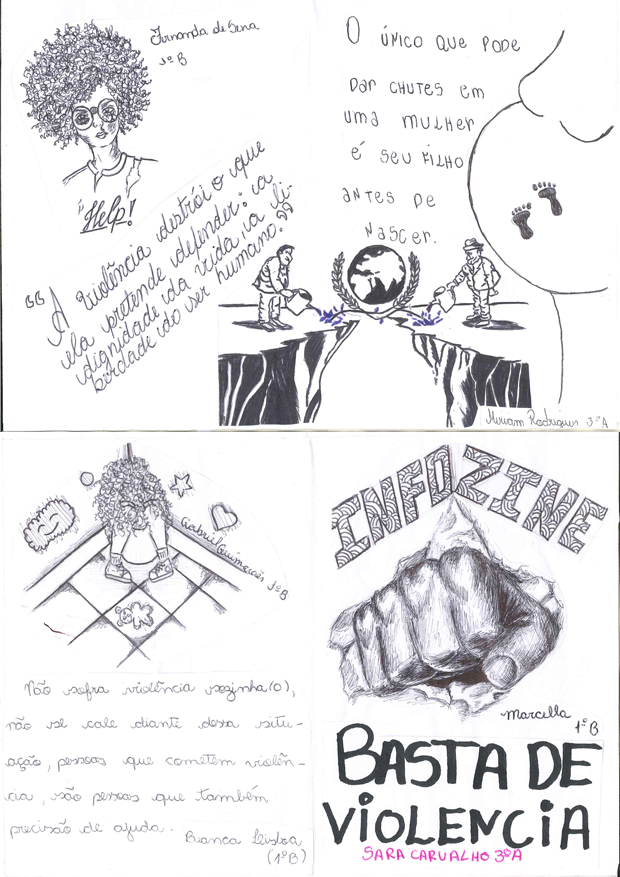 Fernanda de Sena
1º B
Help!
" A violência destrói o que
ela pretende defender: a
dignidade da vida, a li-
berdade do ser humano. "
O ÚNICO QUE PODE
DAR CHUTES EM
UMA MULHER
É SEU FILHO
ANTES DE
NASCER.
Miriam Rodrigues 3ºA
Gabriel Guimarães 1º B
Não sofra violência sozinha(o),
não se cale diante dessa situ-
ação, pessoas que cometem violên-
cia, são pessoas que também
precisão de ajuda.
Bianca Lisboa
(1ºB)
INFOZINE
Marcella
1º B
BASTA DE
VIOLENCIA
SARA CARVALHO 3ºA